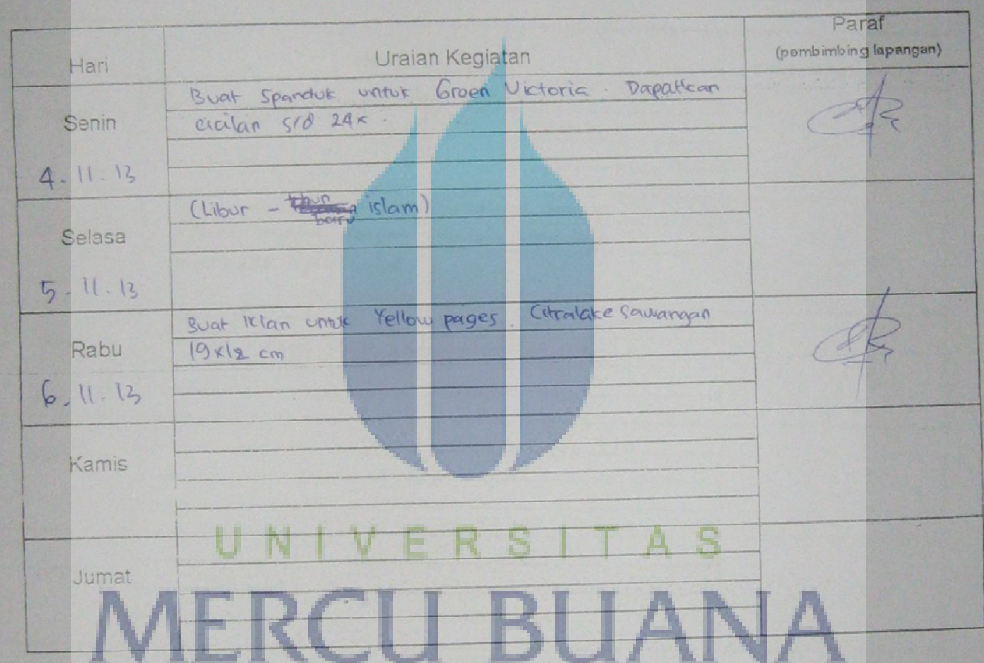 Hari Uraian Kegiatan Paraf
(pembimbing lapangan)
Senin
4.11.13
Buat Spanduk untuk Groen Victoria. Dapatkan
cicilan s/d 24x.
Selasa
5.11.13
(Libur - tahun baru islam)
Rabu
6.11.13
Buat Iklan untuk Yellow pages. Citralake Sawangan
19x12 cm
Kamis
Jumat
UNIVERSITAS
MERCU BUANA